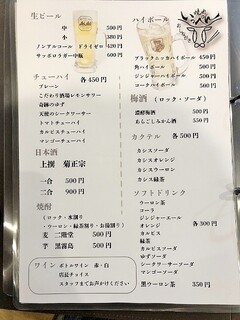 生ビール
中 500円
小 380円
ノンアルコール ドライゼロ 420円
サッポロラガー中瓶 600円
チューハイ 各450円
プレーン
こだわり酒場レモンサワー
奇跡のゆず
天使のシークワーサー
トマトチューハイ
カルピスチューハイ
マンゴーチューハイ
日本酒
上撰 菊正宗
一合 500円
二合 900円
焼酎
(ロック・水割り
・ウーロン・緑茶割り・お湯割り)
麦 二階堂 500円
芋 黒霧島 500円
ワイン ボトルワイン 赤・白
店長チョイス
スタッフまでお声がけください
ハイボール
ブラックニッカハイボール 450円
角ハイボール 500円
ジンジャーハイボール 500円
コークハイボール 500円
梅酒 (ロック・ソーダ)
濃醇梅酒 500円
あらごしみかん酒 550円
カクテル 各500円
カシスソーダ
カシスオレンジ
カシスウーロン
カシス緑茶
ソフトドリンク
ウーロン茶
コーラ
ジンジャエール
オレンジ 各300円
カルピス
緑茶
カルピスソーダ
ゆずソーダ
シークワーサーソーダ
マンゴーソーダ
黒ウーロン茶 350円